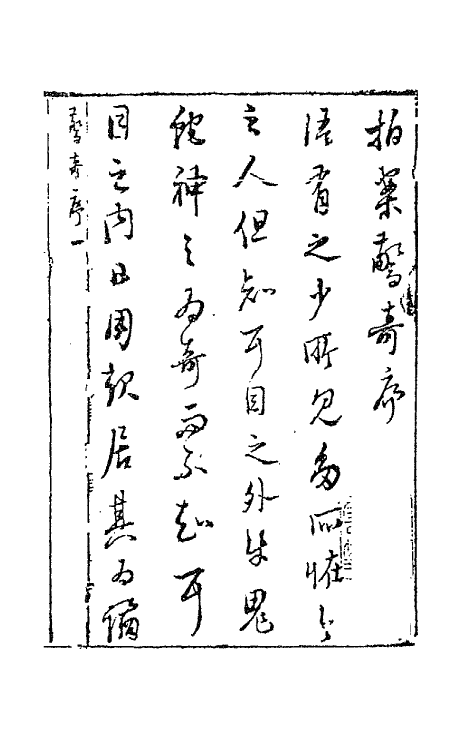 拍案驚奇序
語有之少所見多所怪今
之人但知耳目之外牛鬼
蛇神之為奇而不知耳
目之内日用起居其為譎
驚奇序一